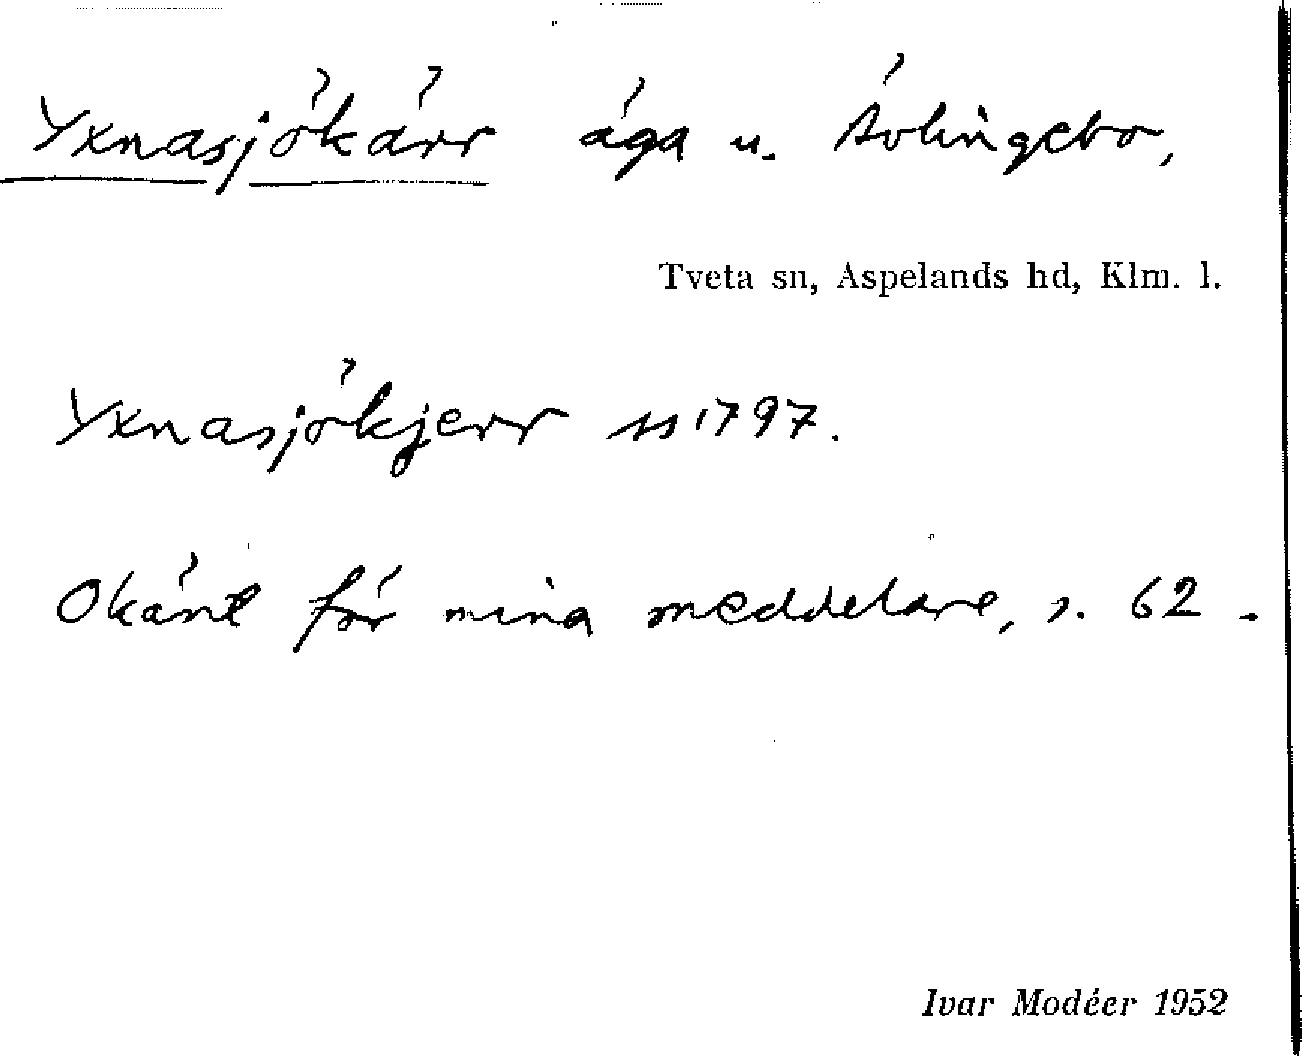 Yxnasjökärr äga u. Ävlingebo,
Tveta sn, Aspelands hd, Klm. l.
Yxnasjökjerr ss 1797.
Okänt för mina meddelare, s. 62.
Ivar Modéer 1952